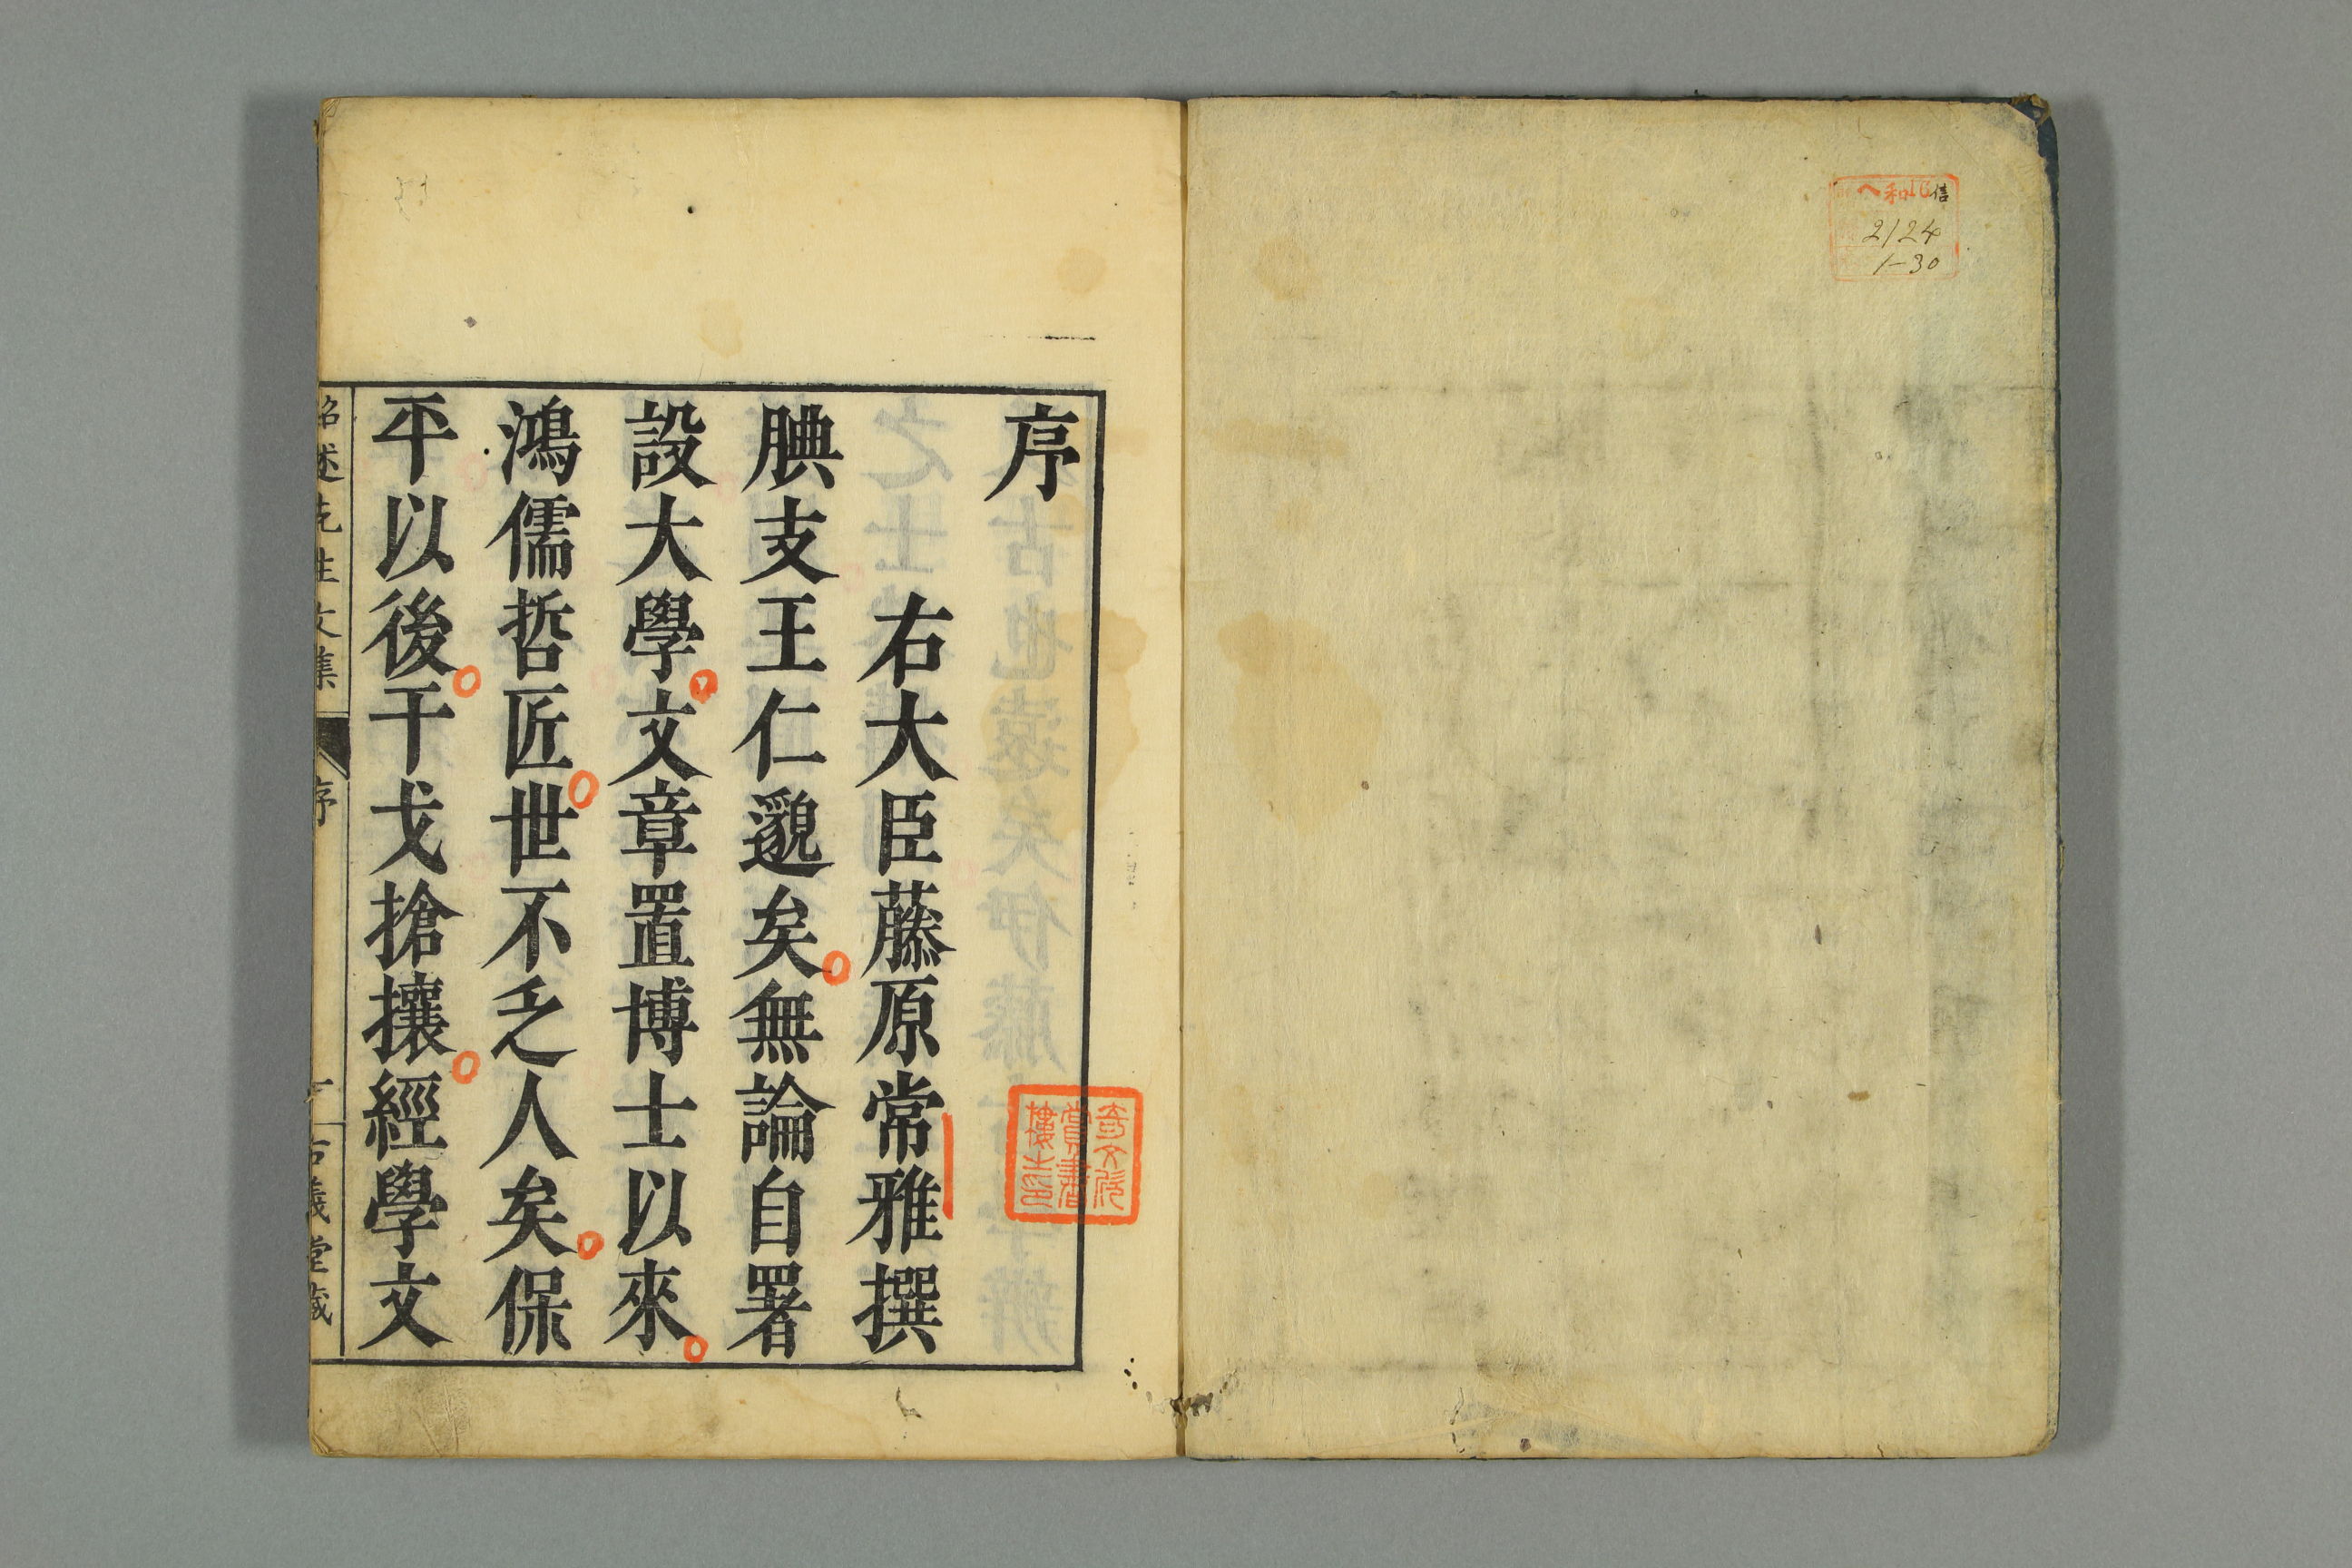 信
へ和16
2124
1-30
序
右大臣藤原常雅撰
腆支王仁邈矣無論自署
設大學文章置博士以來
鴻儒哲匠世不乏人矣保
平以後干戈搶攘經學文
紹述先生文集
序
古義堂藏
奇文欣
賞書
樓之印